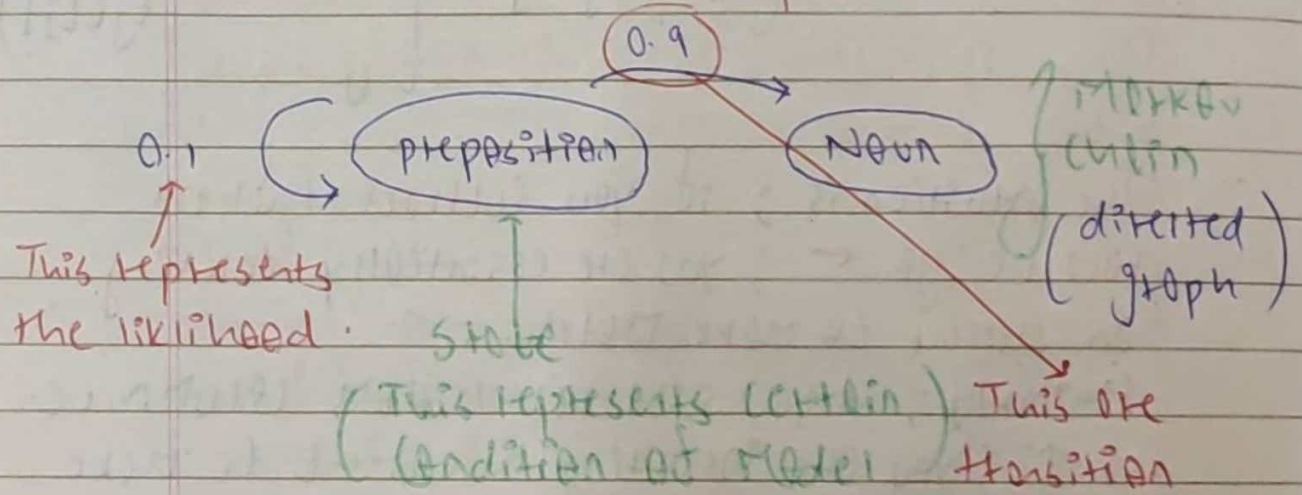 0.9
0.1 preposition Noun Markov
chain
(directed
graph)
This represents
the liklihood.
State
(This represents certain
condition of Model)
This are
transition